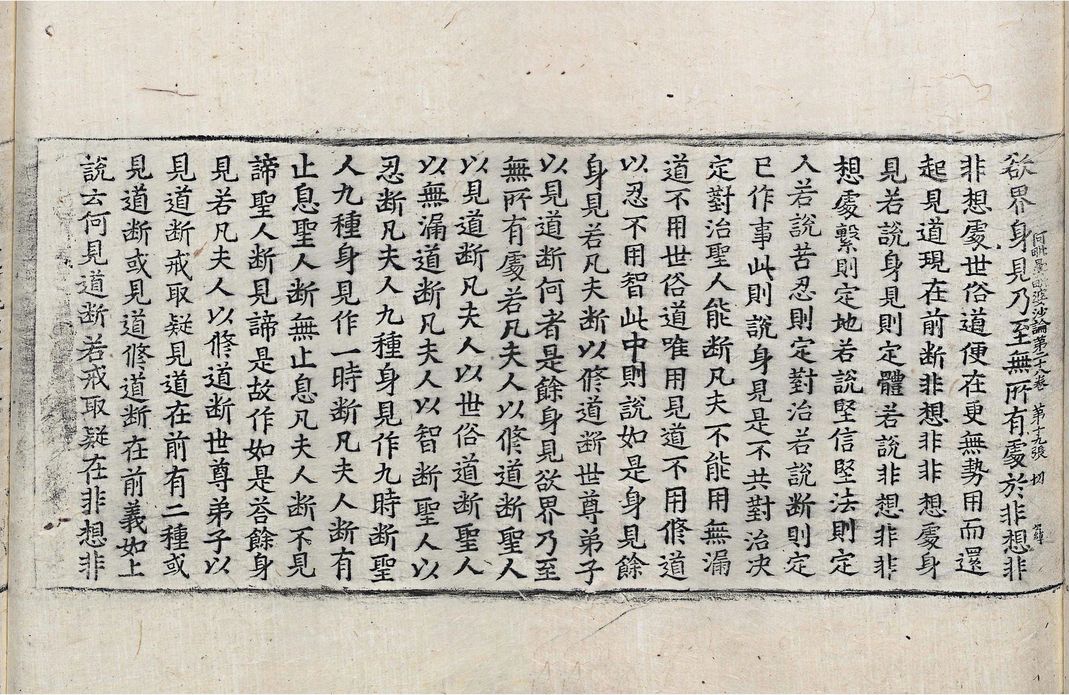 欲界身見乃至無所有處於非想非
阿毗曇毗婆沙論第二十八卷 第十九張 切
非想處世俗道便在更無勢用而還
起見道現在前断非想非非想處身
見若說身見則定體若說非想非非
想處繫則定地若說堅信堅法則定
人若說苦忍則定對治若說断則定
已作事此則說身見是不共對治决
定對治聖人能断凡夫不能用無漏
道不用世俗道唯用見道不用修道
以忍不用智此中則說如是身見餘
身見若凡夫断以修道断世尊弟子
以見道断何者是餘身見欲界乃至
無所有處若凡夫人以修道断聖人
以見道断凡夫人以世俗道断聖人
以無漏道断凡夫人以智断聖人以
忍断凡夫人九種身見作九時断聖
人九種身見作一時断凡夫人断有
止息聖人断無止息凡夫人断不見
諦聖人断見諦是故作如是荅餘身
見若凡夫人以修道断世尊弟子以
見道断戒取疑見道在前有二種或
見道断或見道修道断在前義如上
說云何見道断若戒取疑在非想非